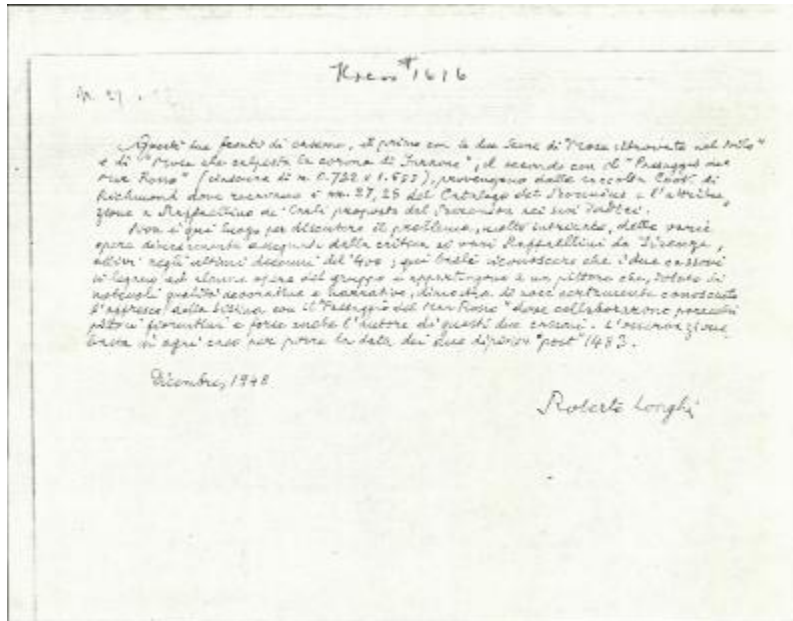 Kress # 1616
N. 27
Questi due fronti di cassone, il primo con le due scene di "Mosè ritrovato nel Nilo"
e di "Mosè che calpesta la corona di Faraone", il secondo con il "Passaggio del
Mar Rosso" (ciascuno di m. 0.722 x 1.555), provengono dalla raccolta Cook di
Richmond dove recavano i nn. 27, 28 del Catalogo del Borenius e l'attribu
zione a Raffaellino de' Carli proposta dal Berenson nei suoi Indici.
Non è qui luogo per discutere il problema, molto intricato, delle varie
opere diversamente assegnate dalla critica ai vari Raffaellini da Firenze,
attivi negli ultimi decenni del '400; qui basti riconoscere che i due cassoni
si legano ad alcune opere del gruppo e appartengono a un pittore che, dotato di
notevoli qualità decorative e narrative, dimostra di aver certamente conosciuto
l'affresco della Sistina con il "Passaggio del Mar Rosso" dove collaborarono parecchi
pittori fiorentini e forse anche l'autore di questi due cassoni. L'osservazione
basta in ogni caso per porre la data dei due dipinti "post" 1483.
Dicembre, 1948
Roberto Longhi